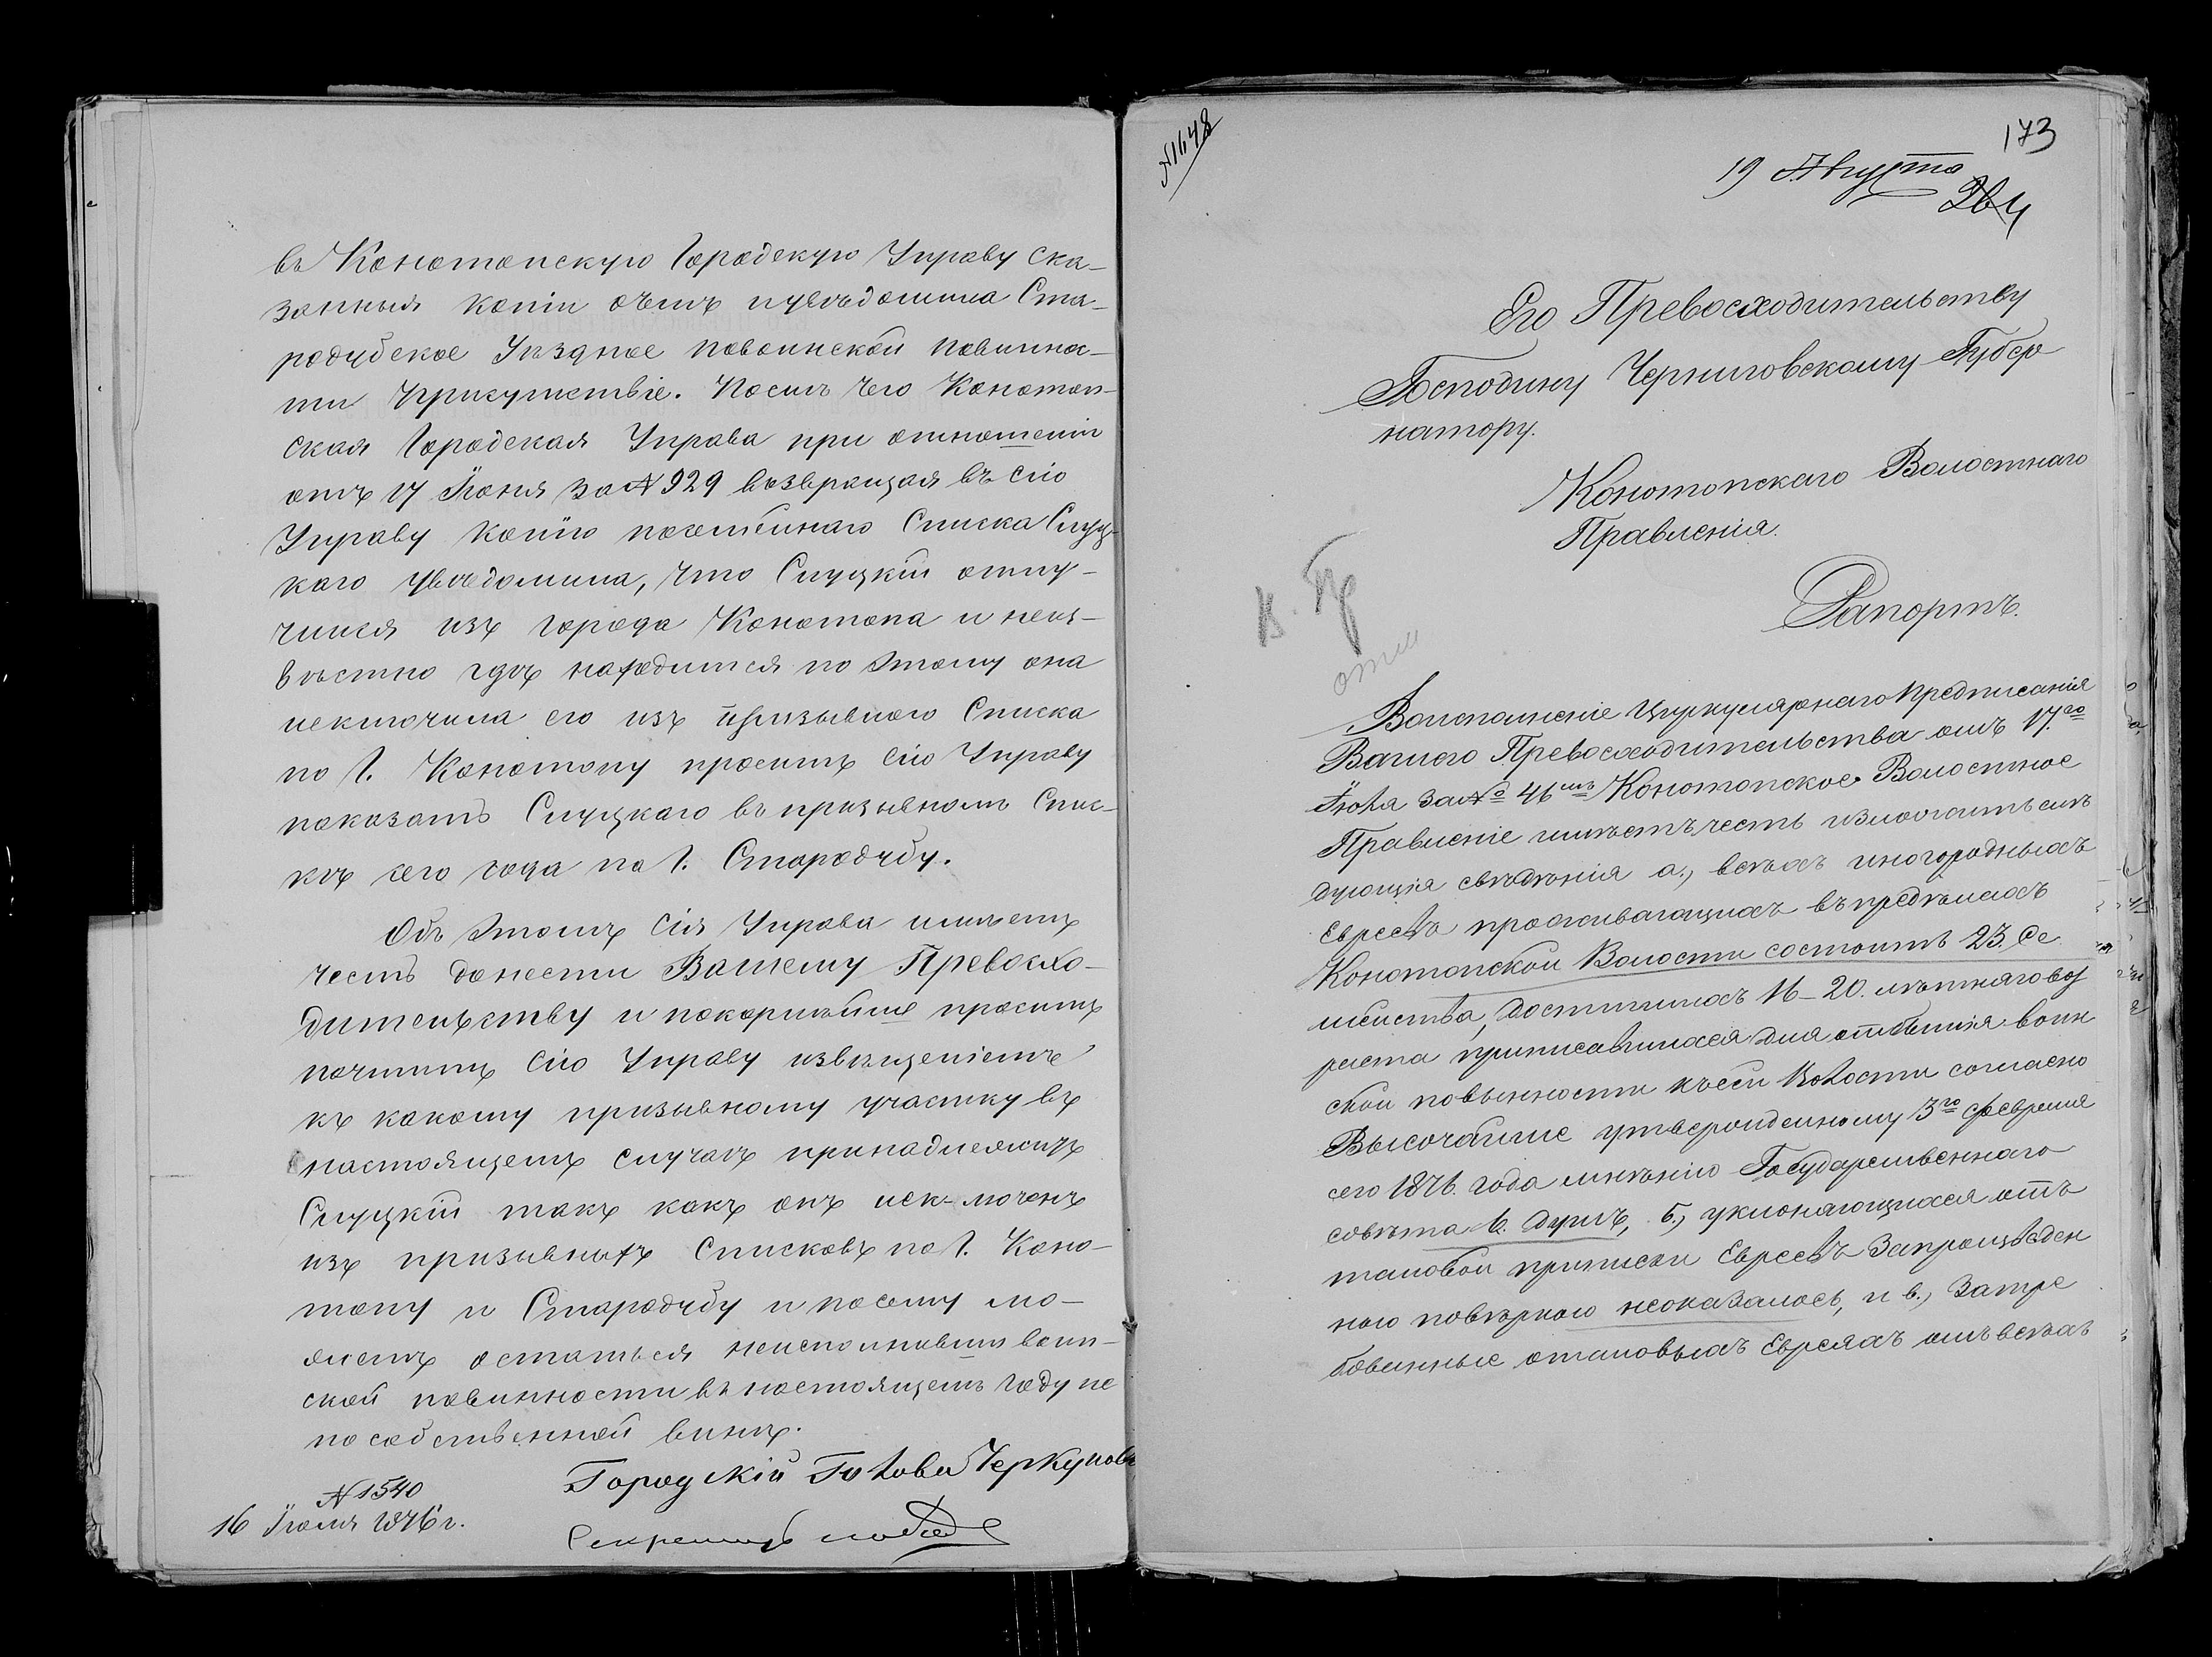 въ Конотопскую Городскую Управу ска-
занныя копіи о чемъ и увѣдомила Ста-
родубское Уѣздное по воинской повинно-
сти Присутствіе. Послѣ чего Конотоп-
ская Городская Управа при отношеніи
отъ 17 Іюня за № 929 возвращая въ сію
Управу копію посемейнаго Списка Слуц-
каго увѣдомила, что Слуцкій отлу-
чился изъ города Конотопа и неиз-
вѣстно гдѣ находится по этому она
исключила его изъ призывного Списка
по Г. Конотопу проситъ сію Управу
показать Слуцкаго въ призывномъ Спис-
кѣ сего года по Г. Стародубу.
Объ этомъ сія Управа имѣетъ
честь донести Вашему Превосхо-
дительству и покорнѣйше проситъ
почтить сію Управу извѣщеніемъ
къ какому призывному участку въ
настоящемъ случаѣ принадлежитъ
Слуцкій такъ какъ онъ исключенъ
изъ призывныхъ Списковъ по Г. Коно-
топу и Стародубу и посему мо-
жетъ остаться неисполнившим воин-
ской повинности въ настоящемъ году не
по собственной винѣ.
Городскій Голова Черкуновъ
№ 1540
16 Іюля 1876 г.
Секретарь
№ 1648
173
19 Августа
Его Превосходительству
Господину Черниговскому Губер
натору.
Конотопскаго Волостнаго
Правленія.
Рапортъ.
Воисполненіе Циркулярнаго Предписанія
Вашего Превосходительства отъ 17.го
Іюля за № 46мъ Конотопское Волостное
Правленіе имѣетъ честь изложить слѣ
дующія свѣдѣнія а., всѣхъ иногородныхъ
Евреевъ проживающихъ въ предѣлахъ
Конотопской Волости состоитъ 23. Се
мейства, достигшихъ 16-20. лѣтняго воз
раста приписавшихся для отбытія воин
ской повинности къ сей Волости согласно
Высочайше утвержденному 3го Февраля
сего 1876. года мнѣнію Государственнаго
совѣта 6. душъ, б., уклоняющихся отъ
таковой приписки Евреевъ за произведен
ною повѣркою неоказалось, и в., затре
бованные отаковыхъ Евреяхъ отъ всѣхъ